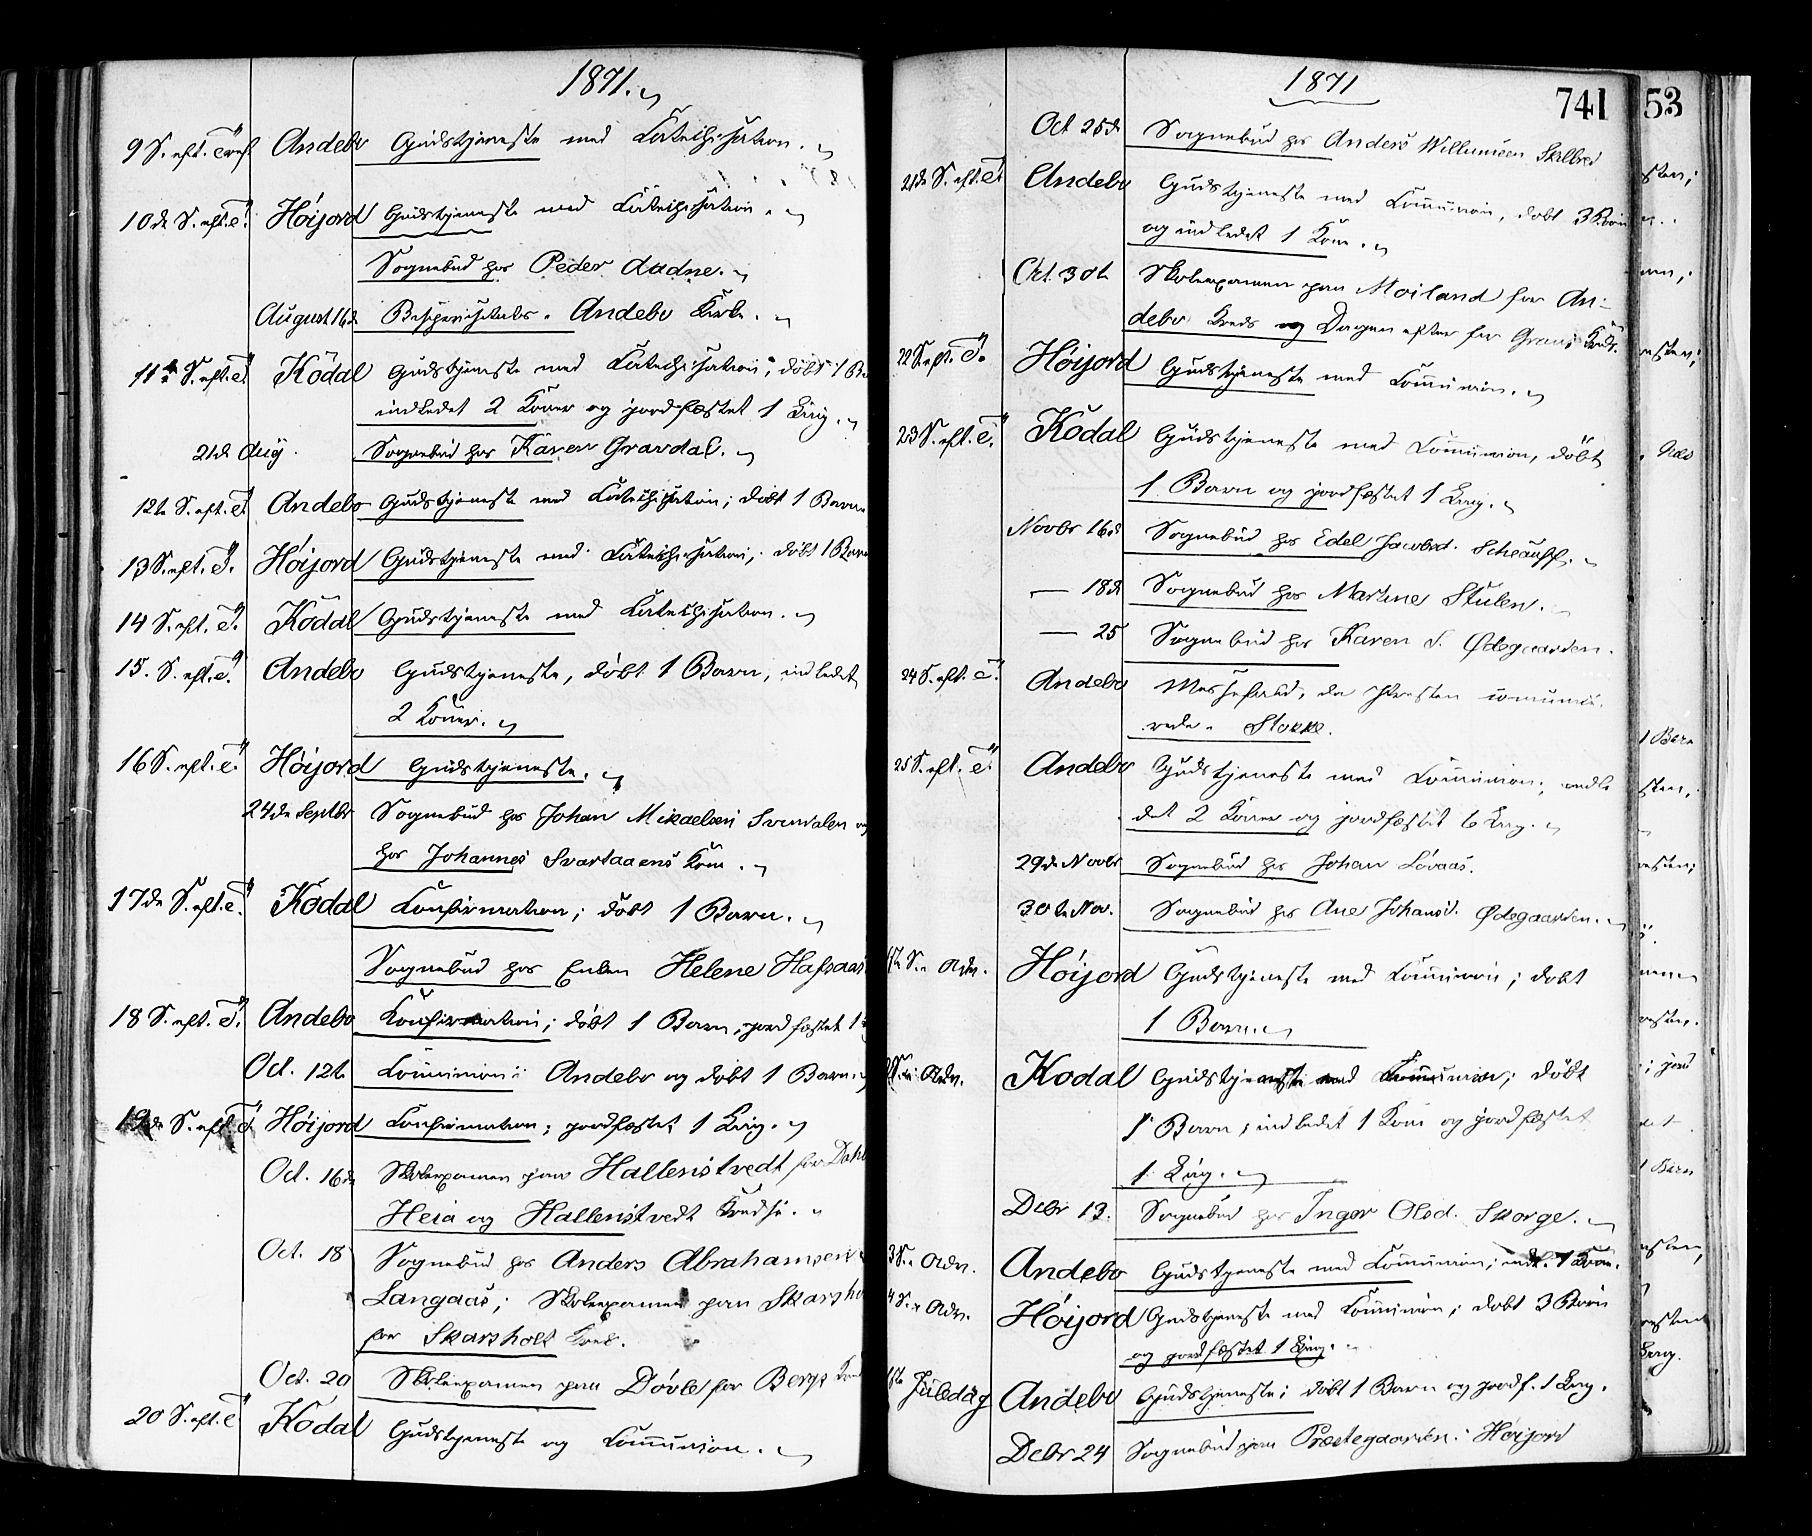 1871.
9 S. eft. Tref. Andebu Gudstjeneste med Catechisation.
10de S. eft. T. Høijord Gudstjeneste med Catechisation.
Sognebud hos Peder Aadne.
August 16de Bispevisitats i Andebu Kirke.
11te S. eft. T. Kodal Gudstjeneste med Catechisation; døbt 1 Ba
indledet 2 Koner og jordfæstet 1 Liig.
21de Aug. Sognebud hos Karen Gravdal.
12te S. eft. T. Andebo Gudstjeneste med Catechisation; døbt 1 Barn
13 S. eft. T. Høijord Gudstjeneste med Catechisation; døbt 1 Barn
14 S. eft. T. Kodal Gudstjeneste med Catechisation.
15. S. eft. T. Andebo Gudstjeneste, døbt 1 Barn, indledet
2 Koner.
16 S. eft. T. Høijord Gudstjeneste.
24de Septbr Sognebud hos Johan Mikaelsen Svendalen og
hos Johannes Svartaaens Kone.
17de S. eft. T. Kodal Confirmation; døbt 1 Barn.
Sognebud hos Enken Helene Hafsaas
18 S. eft. T. Andebo Konfirmation; døbt 1 Barn, jordfæstet 1
Oct. 12te Communion i Andebo og døbt 1 Barn.
19de S. eft. T. Høijord Confirmation; jordfæstet 1 Liig.
Oct. 16de Skoleexamen paa Hallenstvedt for Dahl
Heia og Hallenstvedt Kredse.
Oct. 18 Sognebud hos Anders Abrahamsen
Langaas; Skoleexamen paa Skarsho
for Skarsholt Kreds.
Oct. 20 Skoleexamen paa Døvle for Bergs Kred
20 S. eft. T. Kodal Gudstjeneste og Communion.
1871
741
53
Oct 25de Sognebud hos Anders Willumsen Skilbred
21de S. eft. T. Andebo Gudstjeneste med Communion, døbt 3 Børn
og indledet 1 Kone.
Oct. 30te Skoleexamen paa Moiland for An-
debo Kreds og Dagen efter for Gravs Kreds.
22 S. eft. T. Høijord Gudstjeneste med Communion.
23 S. eft. T. Kodal Gudstjeneste med Communion, døbt
1 Barn og jordfæstet 1 Liig.
Novbr 16de Sognebud hos Edel Jacobsd.
— 18de Sognebud hos Martine Stulen.
— 25 Sognebud hos Karen S. Ødegaarden.
24 S. eft. T. Andebo Messefald, da Presten communi-
rede i Stokke.
25 S. eft. T. Andebo Gudstjeneste med Communion, indle
det 2 Koner og jordfæstet 6 Liig.
29de Novbr Sognebud hos Johan Løvaas.
30te Nov. Sognebud hos Ane Johansd. Ødegaarden.
1ste S. i Adv. Høijord Gudstjeneste med Communion; døbt
1 Barn.
2 S. i Adv. Kodal Gudstjeneste med Communion; døbt
1 Barn; indledet 1 Kone og jordfæstet
1 Liig.
Debr 13. Sognebud hos Inger Olsd. Skorge.
3 S. i Adv. Andebo Gudstjeneste med Communion; indl. 1 Kone.
4 S. i Adv. Høijord Gudstjeneste med Communion; døbt 3 Børn
og jordfæstet 1 Liig.
1ste Juledag Andebo Gudstjeneste; døbt 1 Barn og jordf. 1 Liig.
Debr 24 Sognebud paa Præstegaarden i Høijord